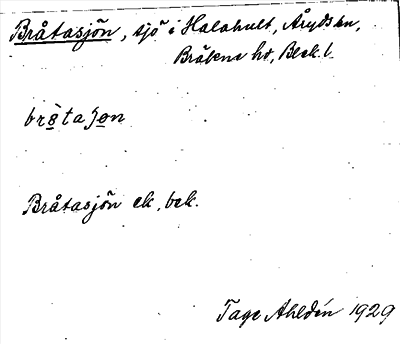 Bråtasjön, sjö i Halahult, Åryds sn,
Bräkne hd, Blek. l.
bròtaʃon
Bråtasjön ek, bek.
Tage Ahldén 1929